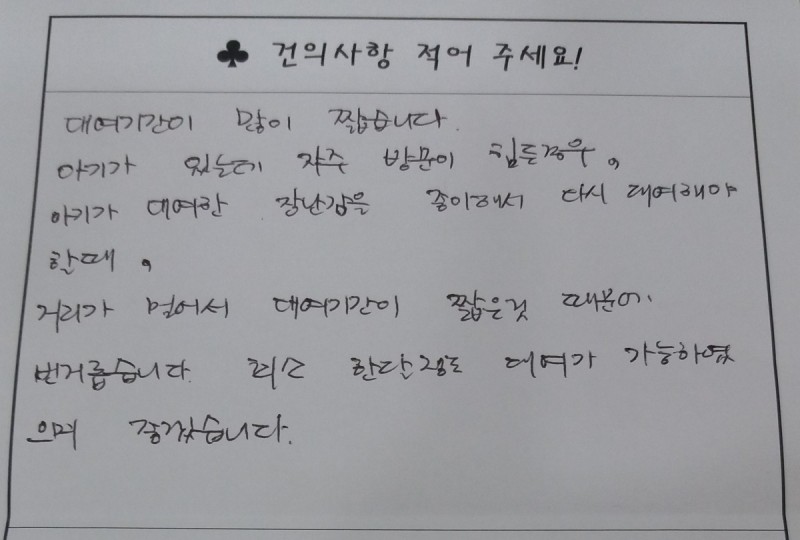 ♣ 건의사항 적어 주세요!
대여기간이 많이 짧습니다.
아기가 있는데 자주 방문이 힘든경우,
아기가 대여한 장난감을 좋아해서 다시 대여해야
할때,
거리가 멀어서 대여기간이 짧은것 때문에
번거롭습니다. 최소 한달정도 대여가 가능하였
으며 좋겠습니다.